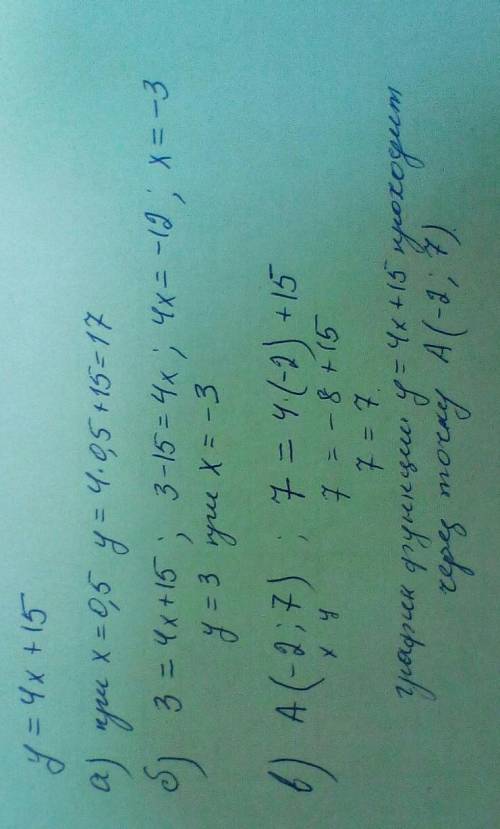 y = 4x + 15
а) при x = 0,5 y = 4·0,5 + 15 = 17
б) 3 = 4x + 15 ; 3 - 15 = 4x ; 4x = -12 ; x = -3
y = 3 при x = -3
в) A (-2 ; 7) ; 7 = 4·(-2) + 15
x y 7 = -8 + 15
7 = 7
график функции y = 4x + 15 проходит
через точку A (-2 ; 7)